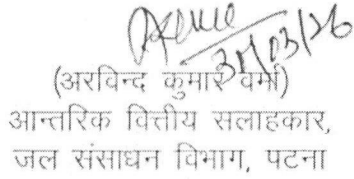 31/03/26
(अरविन्द कुमार वर्मा)
आन्तरिक वित्तीय सलाहकार,
जल संसाधन विभाग, पटना